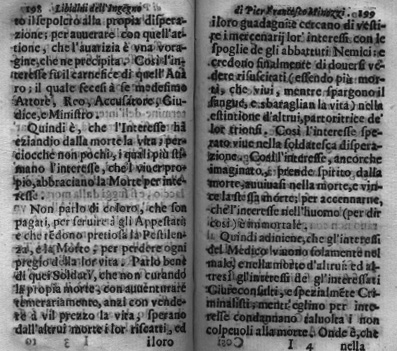 198 Libidli dell'Ingegno
to il sepolcro alla propia dispera-
zione; per auuerare con quell'at-
tione, che l'auarizia è vna vora-
gine, che ne precipita. Così l'in-
teresse fù il carnefice di quell'Aua-
ro; il quale fecesi à se medesimo
Attore, Reo, Accusatore, Giu-
dice, e Ministro.
Quindi è, che l'Interesse hà
eziandio dalla morte la vita; per-
ciocche non pochi, i quali più sti-
mano l'interesse, che'l viuer pro-
pio, abbraciano la Morte per inte-
resse.
Non parlo di coloro, che son
pagati, per seruire à gli Appestati
e che rēdono preziosa la Pestilen-
za, è la Morte, per perdere ogni
pregio della lor vita. Parlo bene
di quei Soldati, che non curando
la propia morte, con auuenturare
temerariamente, anzi con vende-
re à vil prezzo la vita, sperano
dall'altrui morte i lor riscatti, ed
I 3 iloro
di Pier Francesco Minozzi. 199
i loro guadagni: e cercano di vesti-
re i mercenarij lor' interessi con le
spoglie de gli abbattuti Nemici: e
credono finalmente di douersi ve-
dere risuscitati (essendo più mor-
ti, che viui, mentre spargono il
sangue, e sbaraglian la vita) nella
estintione d'altrui, partoritrice de'
lor trionfi. Così l'interesse spe-
rato viue nella soldatesca dispera-
zione. Così l'interesse, ancorche
imaginato, prende spirito dalla
morte, auuiuasi nella morte, e vin-
ce la stessa morte; per accennarne,
che l'interesse nell'huomo (per dir
così) è immortale.
Quindi adiuiene, che gl'interessi
del Medico viuono solamente nel
male, e nella morte d'altrui: ed al-
tresì gl'interessi de gl'interessati
Giureconsulti, e spezialmēte Cri-
minalisti; mentr'eglino per inte-
resse condannano taluolta i non
colpeuoli alla morte. Onde è, che
I 4 nella